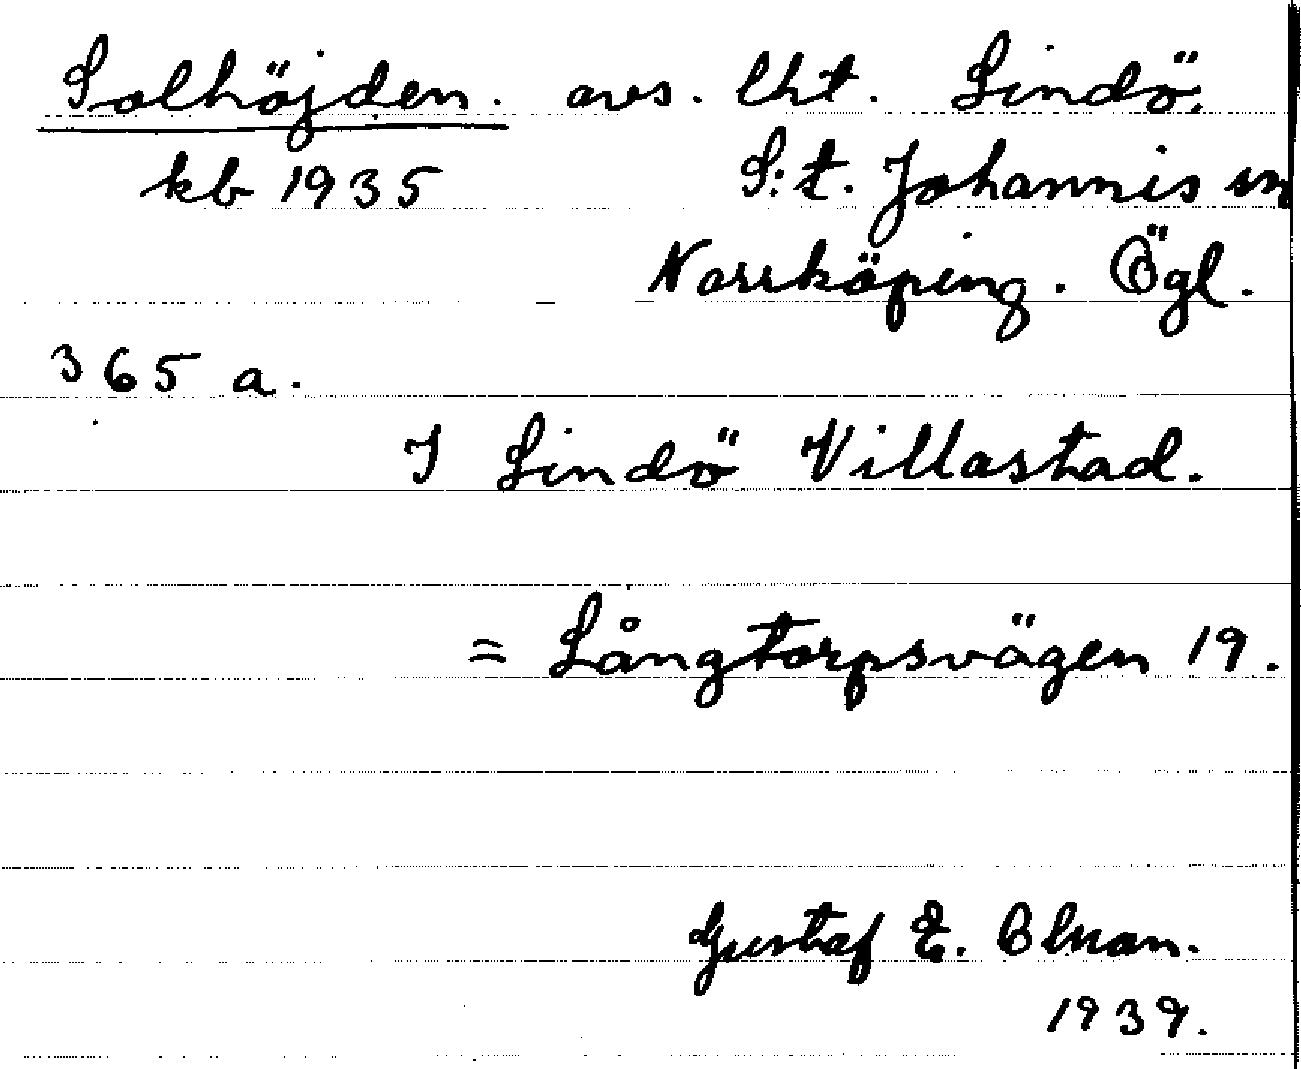 Solhöjden. avs. lht. Lindö.
kb 1935 S:t. Johannis sn
Norrköping. Ögl.
365 a.
I Lindö Villastad.
= Långtorpsvägen 19.
Gustaf E.
1939.